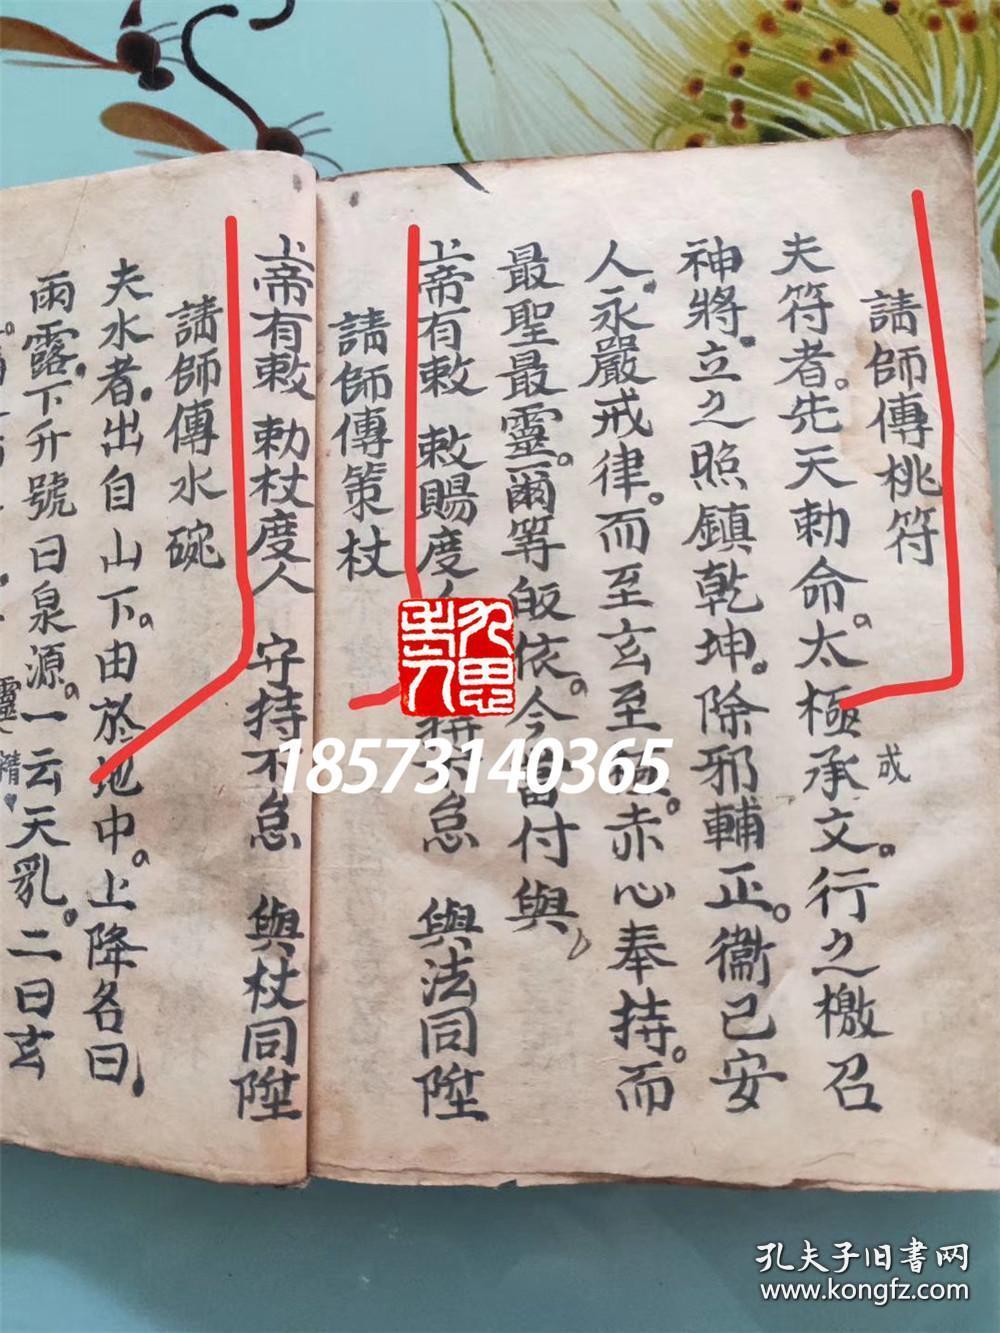 請師傳桃符
夫符者。先天勅命。太極承文。行之檄召
成
神將。立之照鎮乾坤。除邪輔正。衞己安
人。永嚴戒律。而至玄至。赤心奉持。而
最聖最靈。爾等皈依。今當付與
上帝有敕 敕賜度人 持怠 與法同陞
請師傳策杖
上帝有敕 勅杖度人 守持不怠 與杖同陞
請師傳水碗
夫水者。出自山下。由於地中。上降名曰
雨露。下升號曰泉源。一云天乳。二曰玄
靈 精
18573140365
孔夫子旧書网
www.kongfz.com